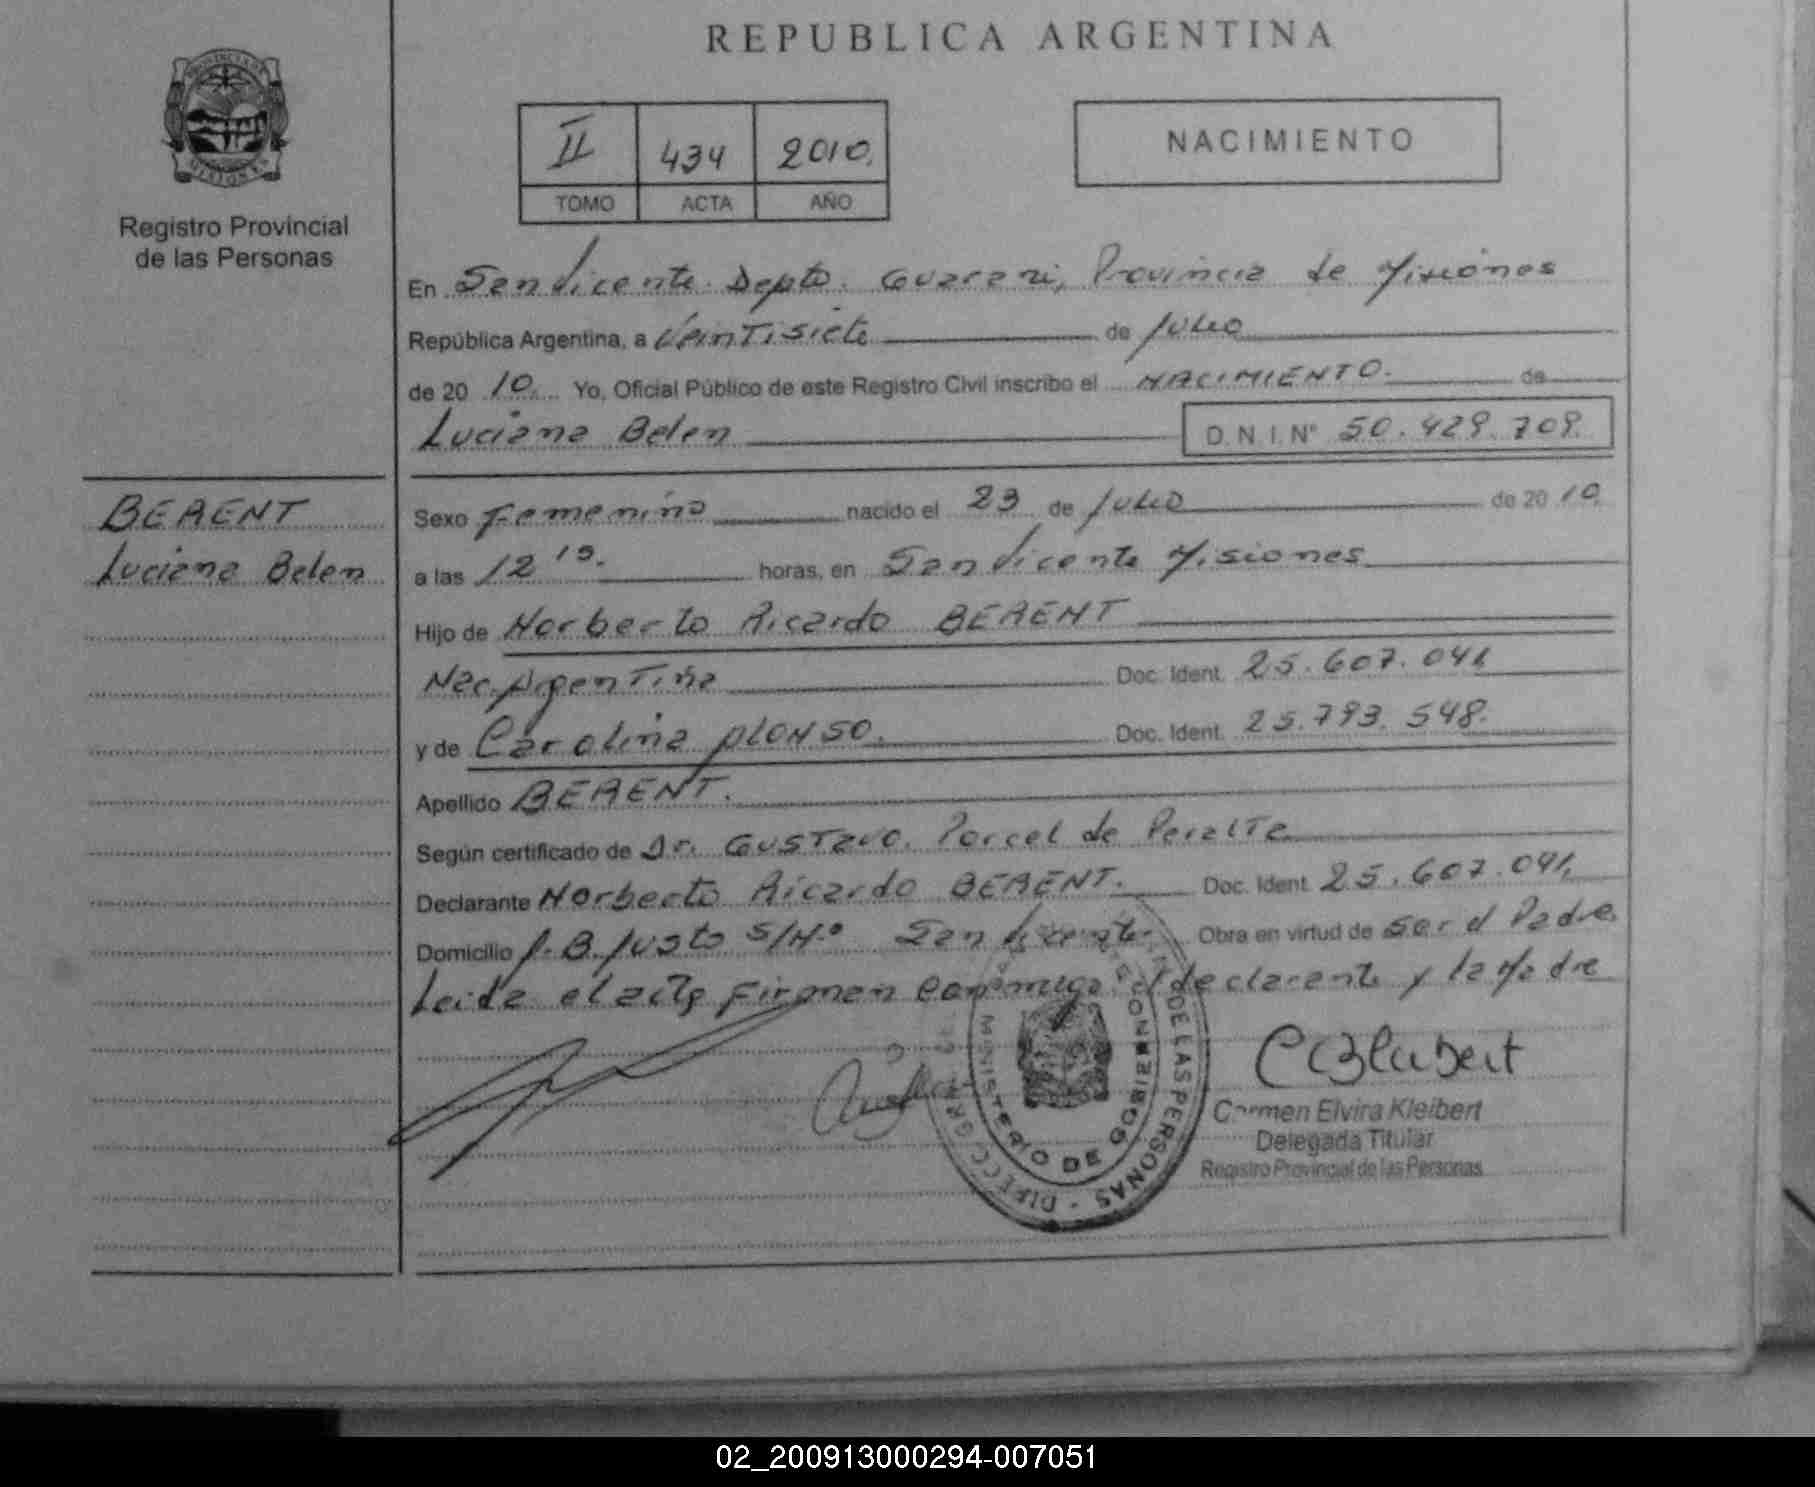 REPUBLICA ARGENTINA
II 434 2010.
TOMO ACTA AÑO
NACIMIENTO
Registro Provincial
de las Personas
En San Vicente. Depto. Guarani, Provincia de Misiones
República Argentina, a Veintisiete de Julio
de 20 10. Yo, Oficial Público de este Registro Civil inscribo el NACIMIENTO. de
Luciana Belen D. N. I. Nº 50.429.709.
BERENT
Luciana Belen
Sexo Femenino nacido el 23 de Julio de 20 10.
a las 12 15. horas, en San Vicente Misiones
Hijo de Norberto Ricardo BERENT
Nac. Argentina Doc. Ident. 25.607.041
y de Carolina ALONSO. Doc. Ident. 25.793.548.
Apellido BERENT.
Según certificado de Dr. Gustavo. Porcel de Peralta
Declarante Norberto Ricardo BERENT. Doc. Ident. 25.607.041,
Domicilio J. B. Justo S/Nº San Vicente Obra en virtud de ser el Padre.
Leida el acta Firman conmigo el declarante y la Madre
MINISTERIO DE GOBIERNO
DE LAS PERSONAS
Carmen Elvira Kleibert
Delegada Titular
Registro Provincial de las Personas
02_200913000294-007051